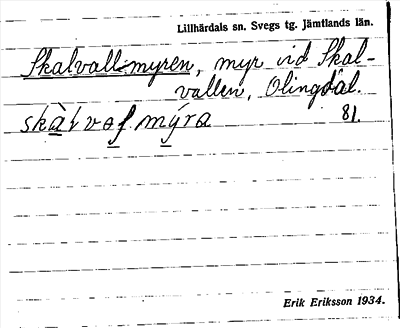 Lillhärdals sn. Svegs tg. Jämtlands län.
Skalvallmyren, myr vid Skal-
vallen, Olingdal.
81.
Erik Eriksson 1934.